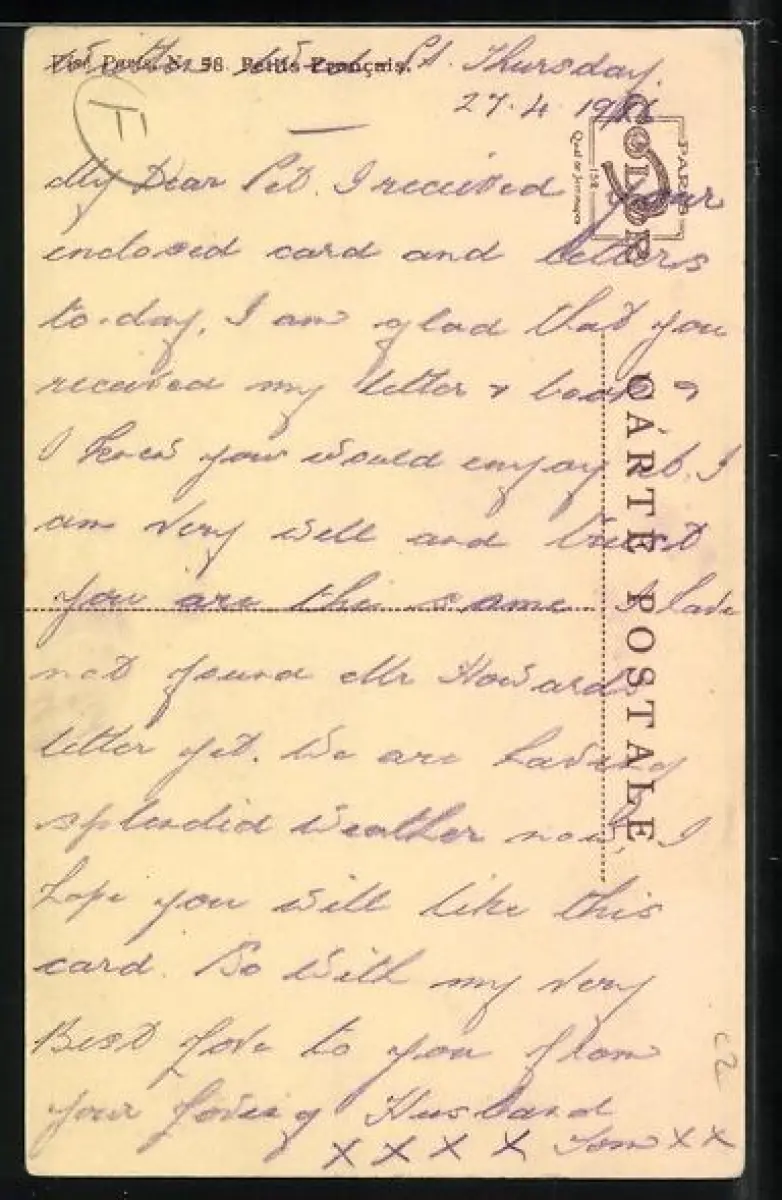 Visé Paris. No 58. Petits Français.
Pt. Thursday.
27.4.1916
My Dear Pet. I received your
enclosed card and letters
to-day, I am glad that you
received my letter & book &
I knew you would enjoy it. I
am very well and trust
you are the same. I have
not found Mr Howards
letter yet. We are having
splendid weather now, I
hope you will like this
card. So with my very
Best Love to you from
your Loving Husband
X X X X Tom X X
COLOR
PARIS
152
Quai de Jemmapes
CARTE POSTALE